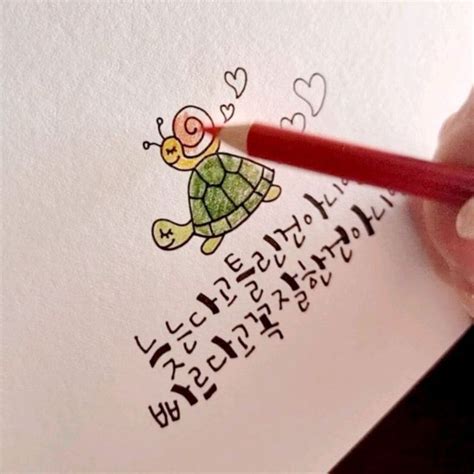 늦는다고 틀린건아니야
빠르다고 꼭 잘한건아니야